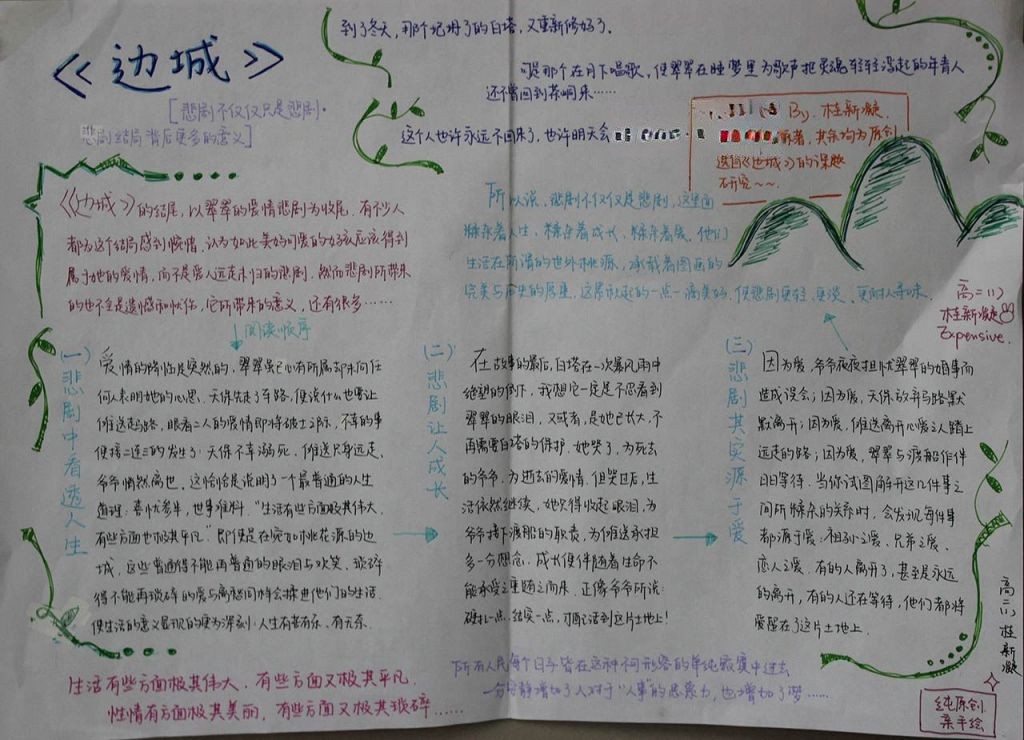 《边城》
[悲剧不仅仅只是悲剧·
悲剧结局背后更多的意义]
到了冬天，那个圮坍了的白塔，又重新修好了。
可是那个在月下唱歌，使翠翠在睡梦里为歌声把灵魂轻轻浮起的年青人
还不曾回到茶峒来……
这个人也许永远不回来了，也许明天会
By. 桂新凝
者，其余均为原创
选自《边城》的课题
研究~~.
《边城》的结尾，以翠翠的爱情悲剧为收尾，有不少人
都为这个结局感到惋惜，认为如此美好可爱的女孩应该得到
属于她的爱情，而不是爱人远走未归的悲剧。然而悲剧所带来
的也不全是遗憾和忧伤，它所带来的意义，还有很多……
阅读顺序
(一)悲剧中看透人生
爱情的降临是突然的，翠翠虽已心有所属却未向任
何人表明她的心思。天保先走了车路，傩送什么也要让
傩送走马路，眼看二人的爱情即将破土之际，不幸的事
便接二连三的发生了：天保不幸溺死，傩送只身远走，
爷爷悄然离世。这恰恰是说明了一个最普通的人生
道理：喜忧参半，世事难料。“生活有些方面极其伟大，
有些方面也极其平凡。”即便是在宛如桃花源的边
城，这些普通得不能再普通的眼泪与欢笑、琐碎
得不能再琐碎的爱与离愁同样会揉进他们的生活，
使生活的意义显现的更为深刻：人生有苦有乐，有无奈。
(二)悲剧让人成长
在故事的最后，白塔在一次暴风雨中
绝望的倒下，我想它一定是不忍看到
翠翠的眼泪，又或者，是她已长大，不
再需要白塔的保护。她哭了，为死去
的爷爷，为逝去的爱情。但哭过后，生
活依然继续，她只得收起眼泪，为
爷爷接下渡船的职责，为傩送承担
多一分想念。成长便伴随着生命不
能承受之重随之而来，正像爷爷所说：
硬扎一点，结实一点，才配活到这片土地上！
(三)悲剧其实源于爱
因为爱，爷爷夜夜担忧翠翠的婚事而
造成误会；因为爱，天保放弃马路默
默离开；因为爱，傩送离开心爱之人踏上
远走的路；因为爱，翠翠与渡船作伴
日日等待。当你试图解开这几件事之
间所糅杂的关系时，会发现每件事
都源于爱：祖孙之爱、兄弟之爱、
恋人之爱。有的人离开了，甚至是永远
的离开，有的人还在等待，他们都将
爱留在了这片土地上。
所以说，悲剧不仅仅是悲剧，这里面
糅杂着人生，糅杂着成长，糅杂着爱。他们
生活在所谓的世外桃源，承载着图画的
完美与历史的厚重，这累积起的一点一滴美好，使悲剧更轻、更淡、更耐人寻味。
高二(1)
桂新凝
Expensive.
生活有些方面极其伟大，有些方面又极其平凡，
性情有方面极其美丽，有些方面又极其琐碎……
所有人民每个日子皆在这种不可形容的单纯寂寞中过去
一分安静增加了人对于“人事”的思索力，也增加了梦……
高二(1) 桂新凝
纯原创
亲手绘